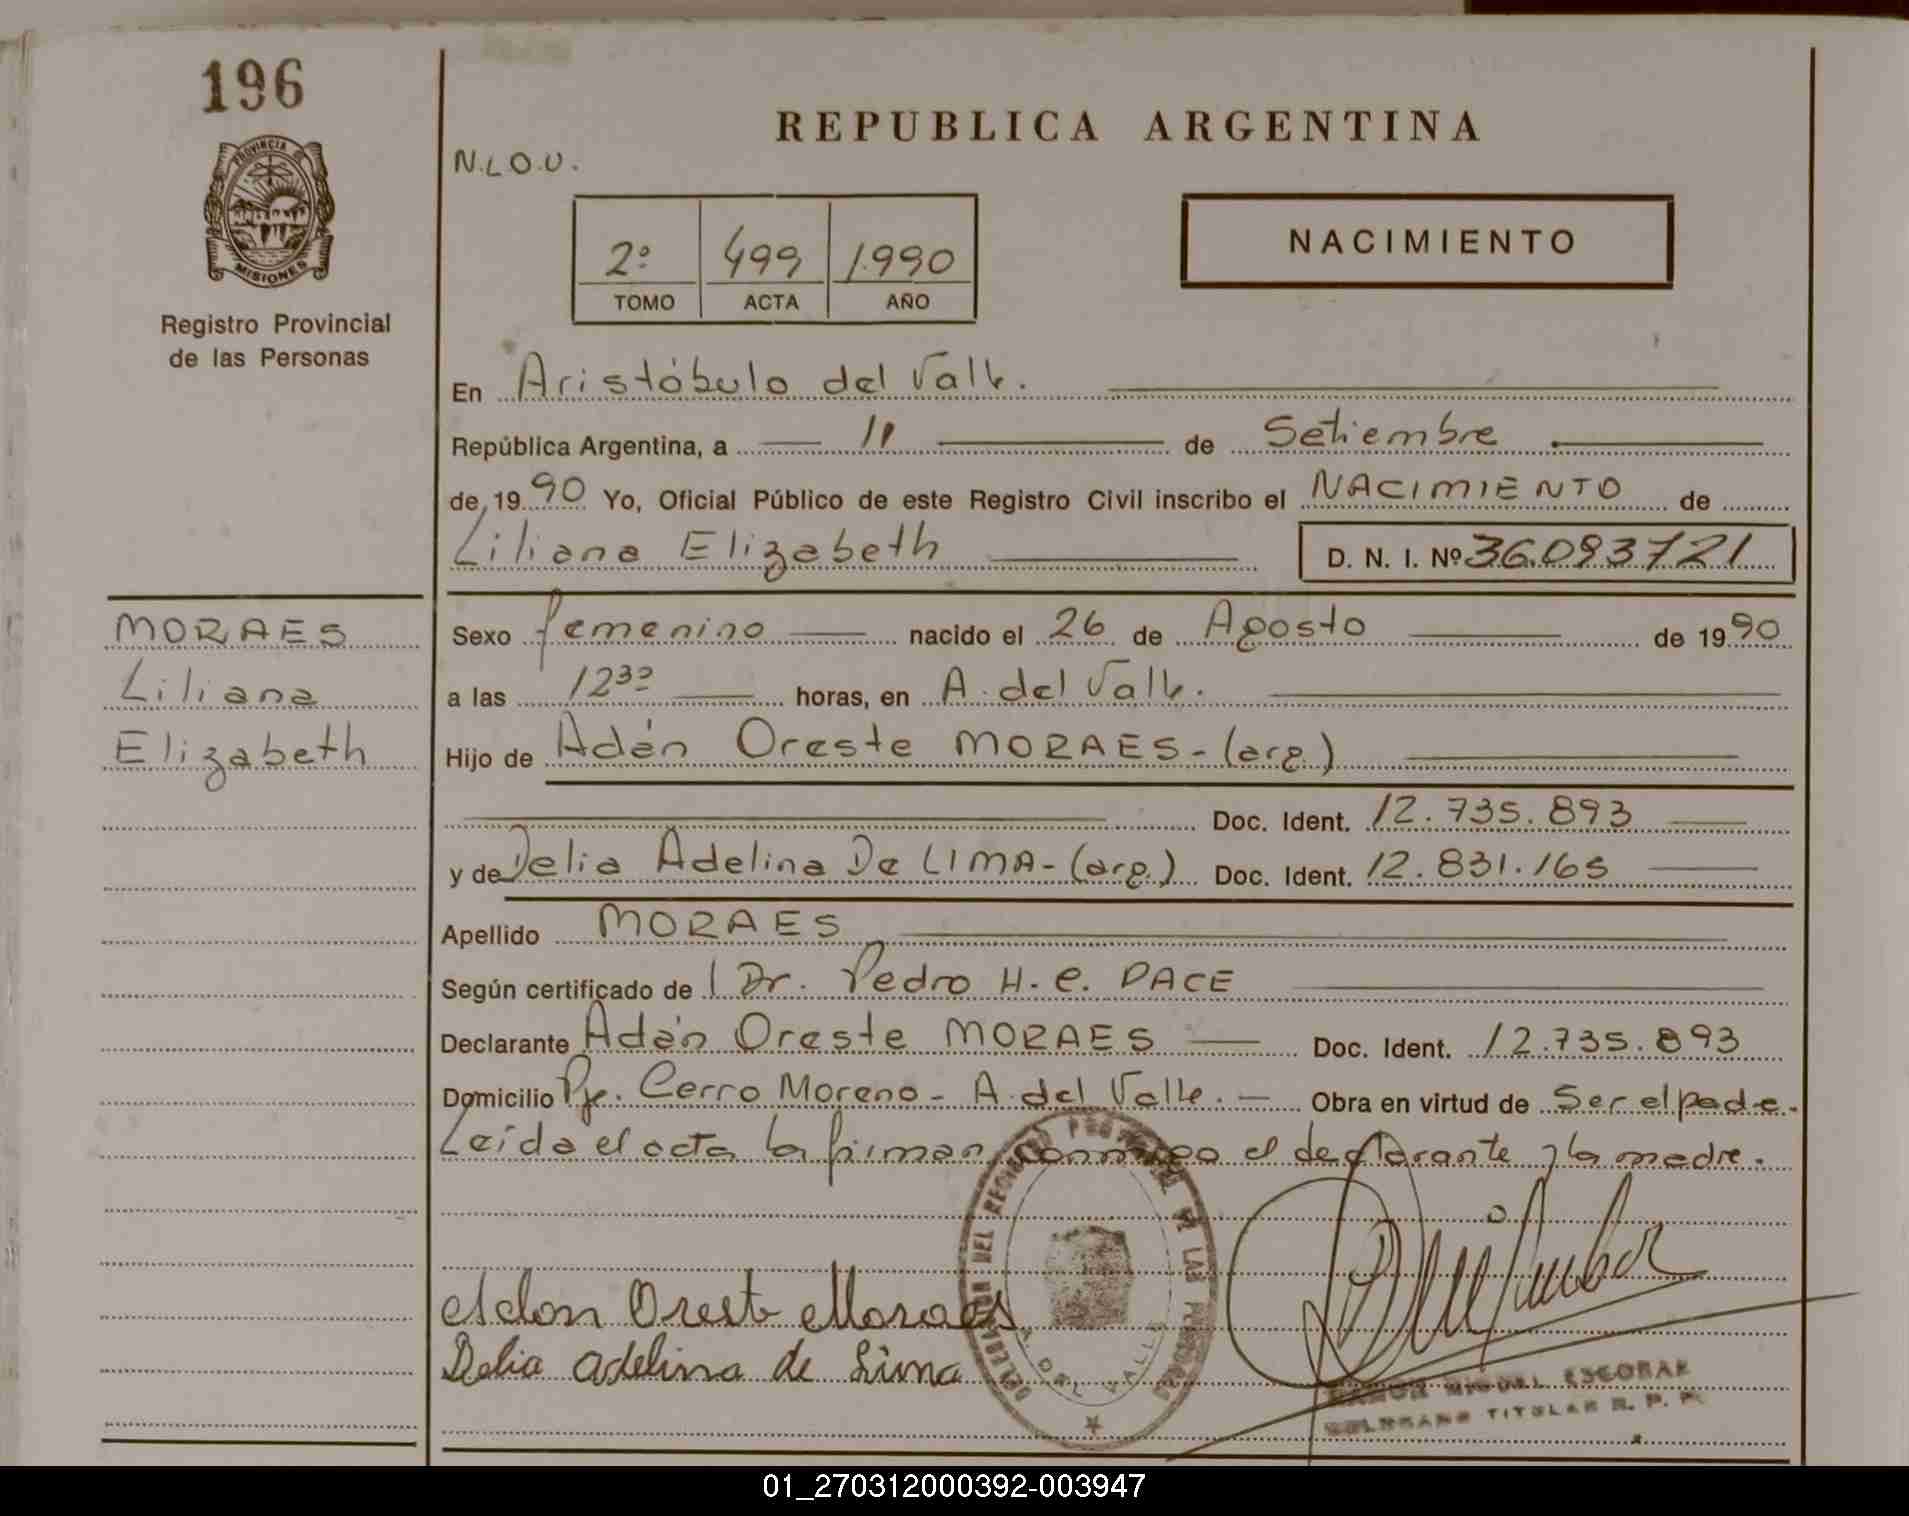 196
PROVINCIA DE
MISIONES
Registro Provincial
de las Personas
REPUBLICA ARGENTINA
N.L.O.U.
2º 499 1.990
TOMO ACTA AÑO
NACIMIENTO
En Aristóbulo del Valle.
República Argentina, a 11 de Setiembre
de 1990 Yo, Oficial Público de este Registro Civil inscribo el NACIMIENTO de
Liliana Elizabeth D. N. I. Nº 36.093721
MORAES
Liliana
Elizabeth
Sexo femenino nacido el 26 de Agosto de 1990
a las 12³⁰ horas, en A. del Valle.
Hijo de Adán Oreste MORAES-(arg.)
Doc. Ident. 12.735.893
y de Delia Adelina De LIMA-(arg.) Doc. Ident. 12.831.165
Apellido MORAES
Según certificado de Dr. Pedro H. C. PACE
Declarante Adán Oreste MORAES Doc. Ident. 12.735.893
Domicilio Pje. Cerro Moreno - A. del Valle. - Obra en virtud de Ser el padre.
Leída el acta la firman conmigo el declarante y la madre.
Adan Oreste Moraes
Delia adelina de Lima
DELEGACION DEL REGISTRO PROVINCIAL DE LAS PERSONAS
A. DEL VALLE
RAMON MIGUEL ESCOBAR
DELEGADO TITULAR R. P. P.
01_270312000392-003947